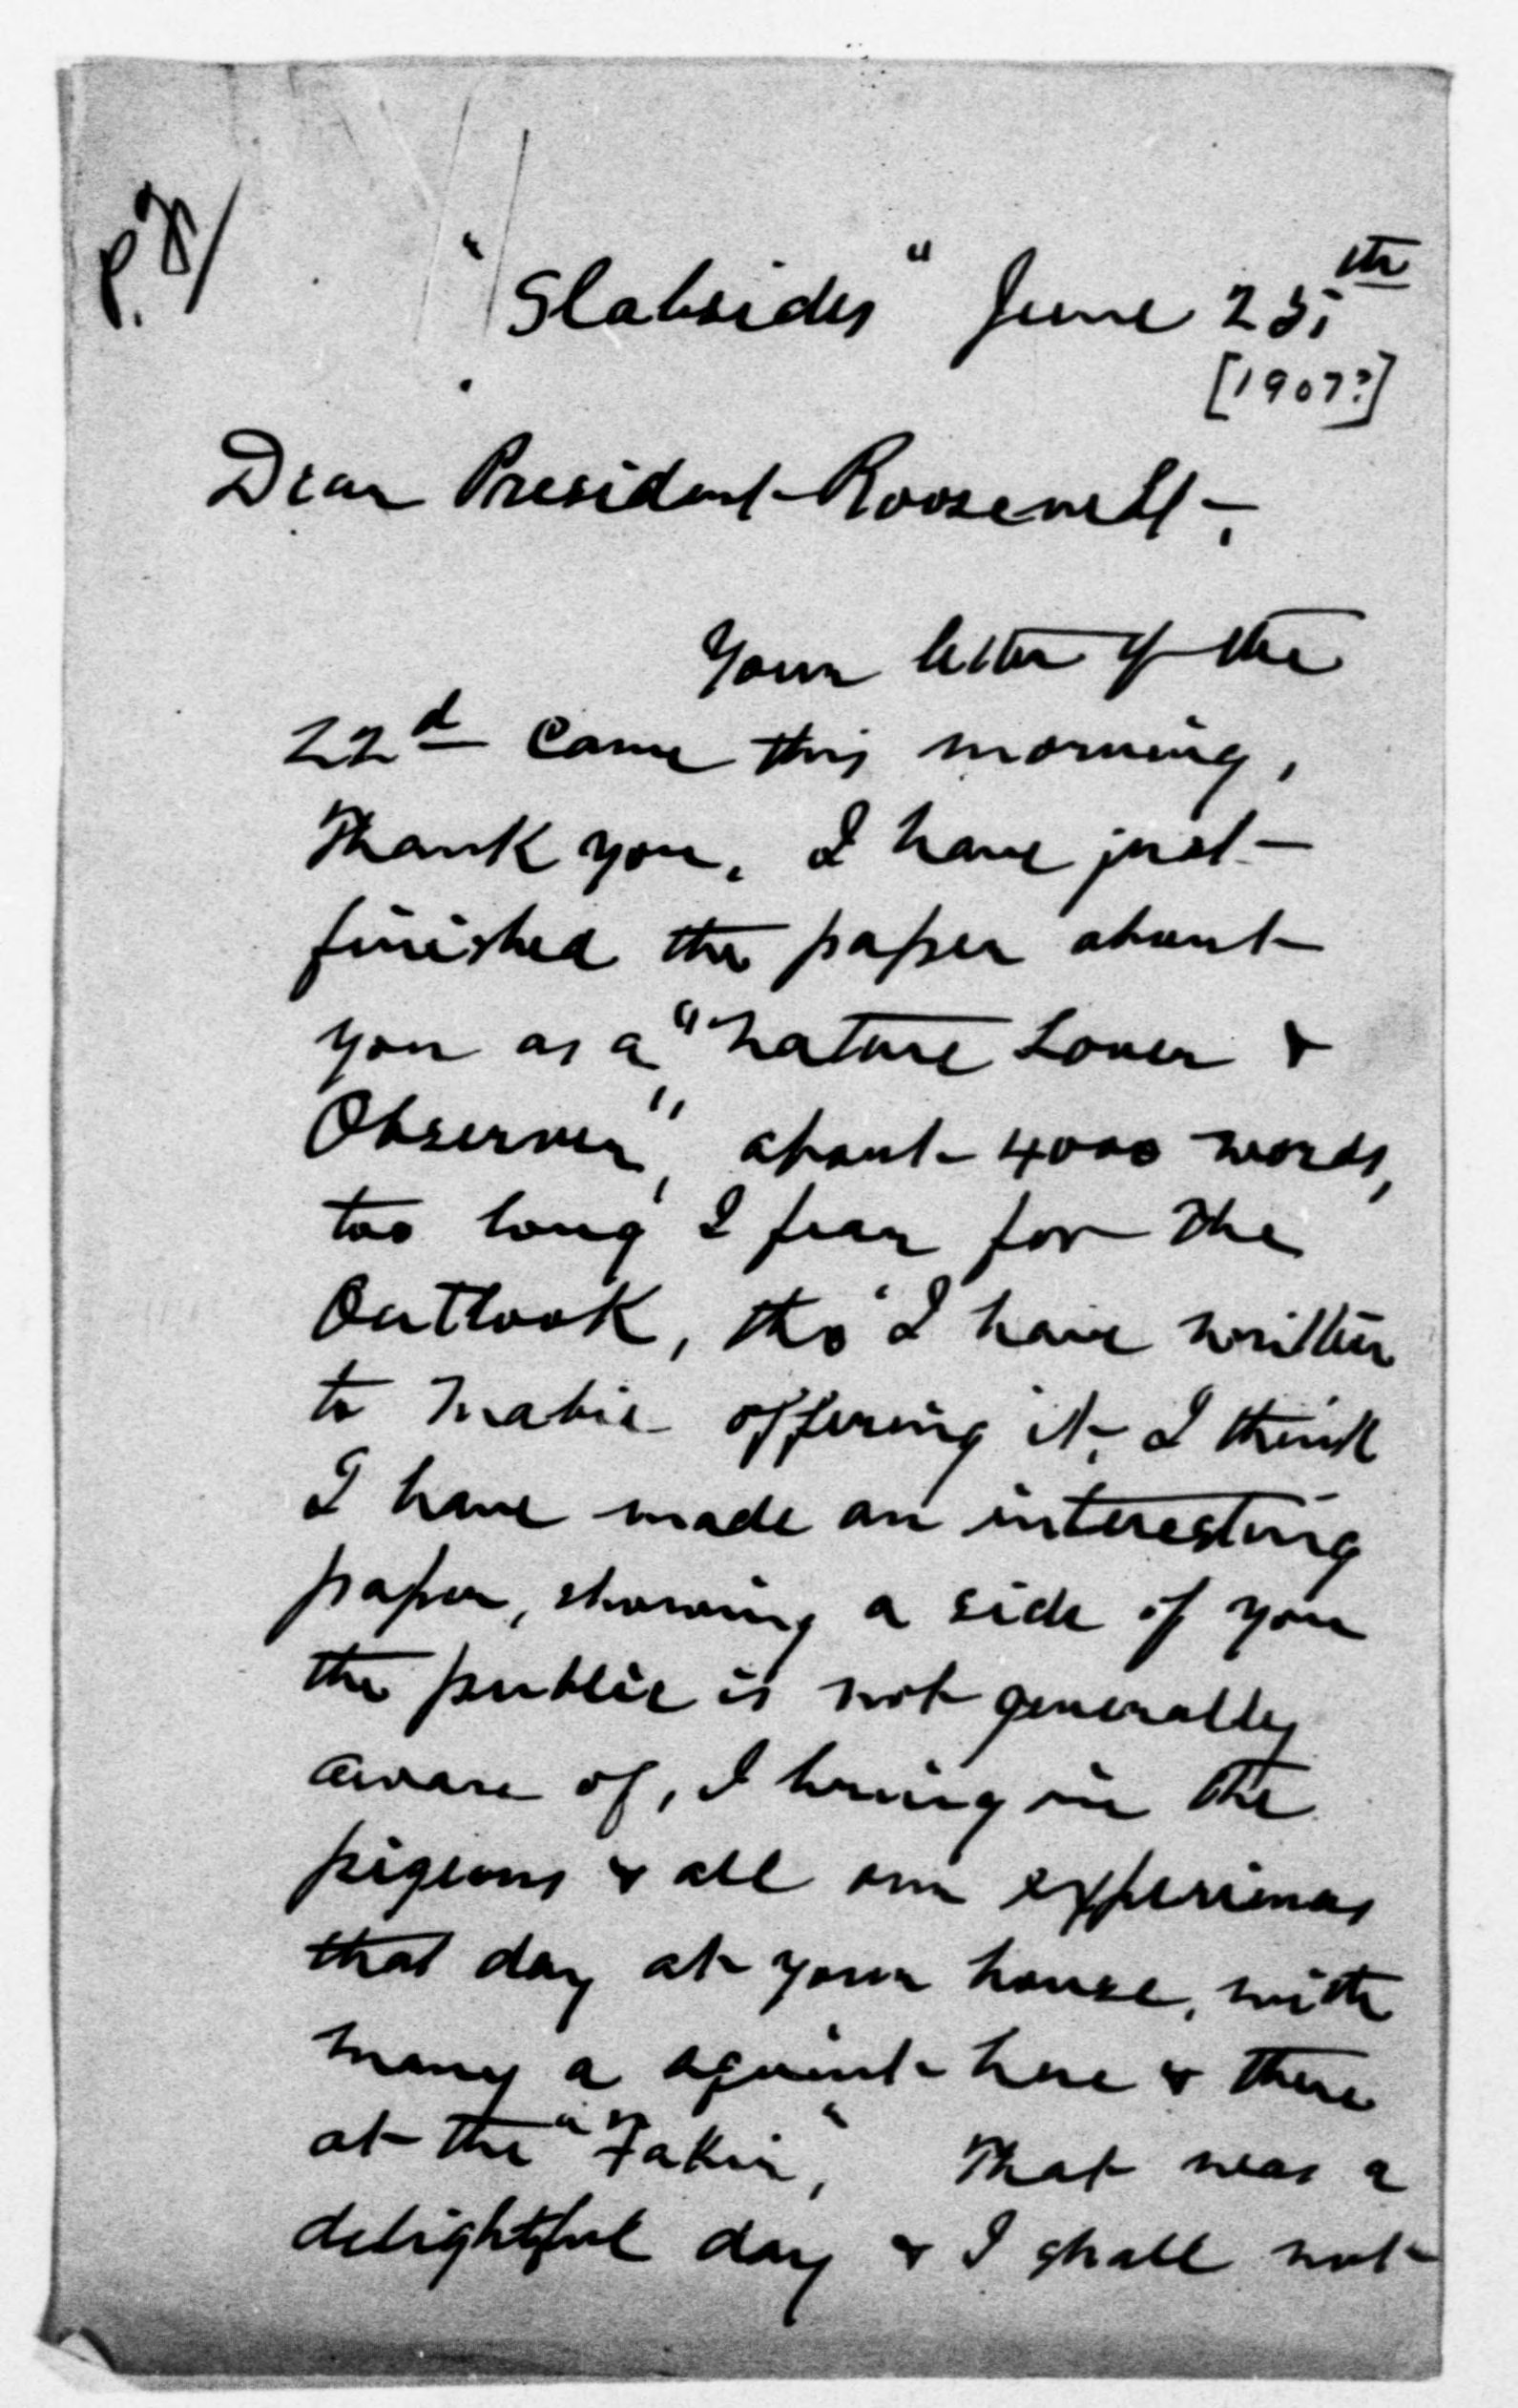 "Slabsides" June 25th
[1907?]
Dear President Roosevelt,
Your letter of the
22d came this morning,
Thank you. I have just
finished the paper about
you as a "Nature Lover &
Observer", about 4000 words,
too long I fear for the
Outlook, tho' I have written
to Mabie offering it. I think
I have made an interesting
paper, showing a side of you
the public is not generally
aware of, I bring in the
pigeons & all our experiences
that day at your house, with
many a squint here & there
at the "Fakir", That was a
delightful day & I shall not